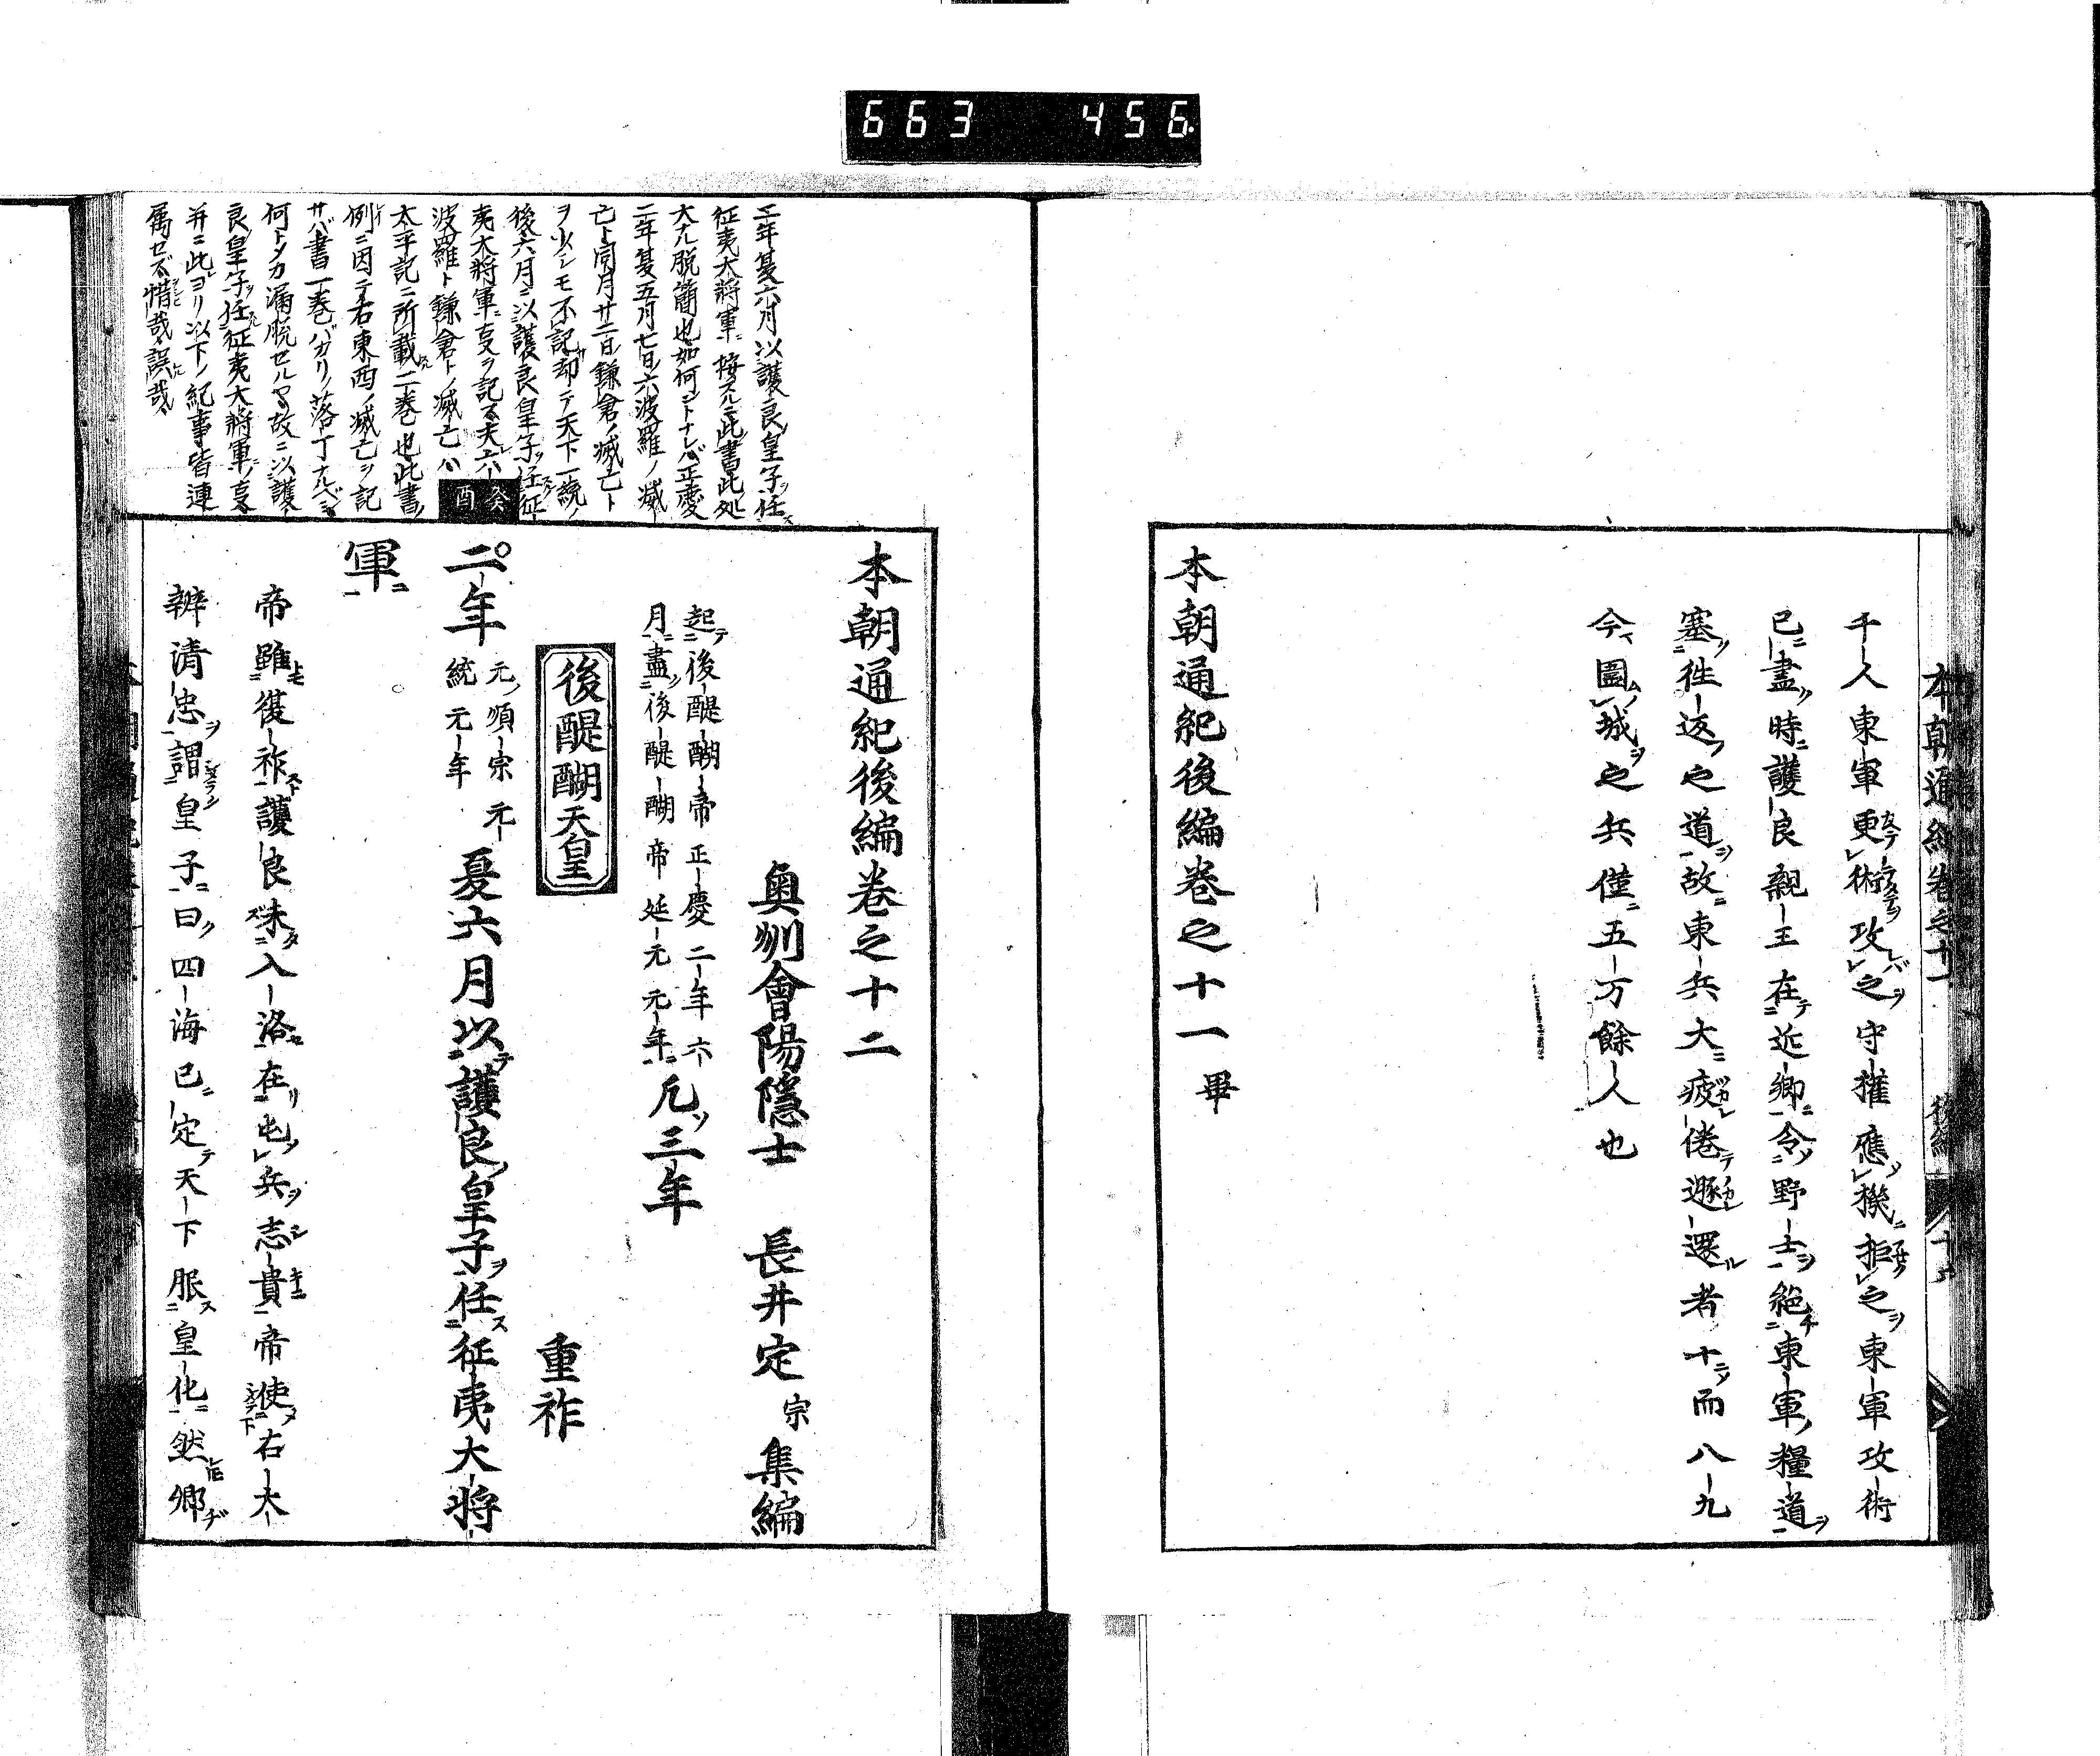 663 456
本朝通紀卷之十一 後編
千人東軍更術攻之守擁應機拒之東軍攻術
已盡時護良親王在近鄉令野士絶東軍糧道
塞往返之道故東兵大疲倦遯還者十而八九
今圍城之兵僅五万餘人也
本朝通紀後編卷之十一 畢
二年夏六月以護良皇子任
征夷大將軍按スルニ此書此処
大ナル脱簡也如何トナレバ正慶
二年夏五月七日六波羅ノ滅
亡ト同月廿二日鎌倉ノ滅亡ト
ヲ少シモ不記却テ天下一統ノ
後六月ニ以護良皇子任征
夷大將軍ニ支ヲ記ス夫六
波羅ト鎌倉トノ滅亡ハ
太平記ニ所載二巻也此書ノ
例ニ因テ右東西ノ滅亡ヲ記
サバ書一巻バカリノ落丁ナルベシ
何トシカ漏脱セルヤ故ニ以護
良皇子任征夷大將軍ノ支
并ニ此ヨリ以下ノ紀事皆連
属セズ惜哉誤哉
癸酉
本朝通紀後編卷之十二
奥州會陽隱士 長井定宗 集編
起後醍醐帝正慶二年六
月盡後醍醐帝延元元年 凡三年
後醍醐天皇 重祚
二年 元順宗元統元年 夏六月以護良皇子任征夷大將
軍
帝雖復祚護良未入洛在屯兵志貴帝使右大
辨清忠謂皇子曰四海已定天下服皇化然卿